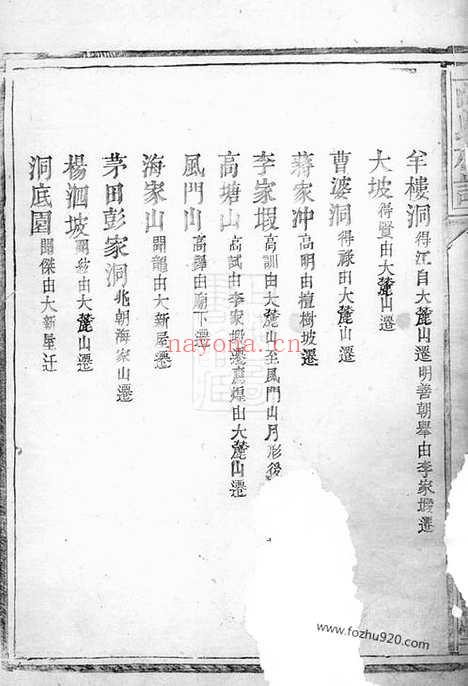 牟樓洞得江自大麓山遷明善朝舉由李家塅遷
大坡得賢由大麓山遷
曹婆洞得祿由大麓山遷
蔣家冲高明由檀樹坡遷
李家塅高訓由大麓山至風門山月形後
高塘山高試由李家塅遷應煌由大麓山遷
風門山高舉由廟下遷
海家山開龍由大新屋遷
茅田彭家洞兆朝海家山遷
楊泗坡由大麓山遷
洞底園開傑由大新屋迁
nayona.cn
www.fozhu920.com